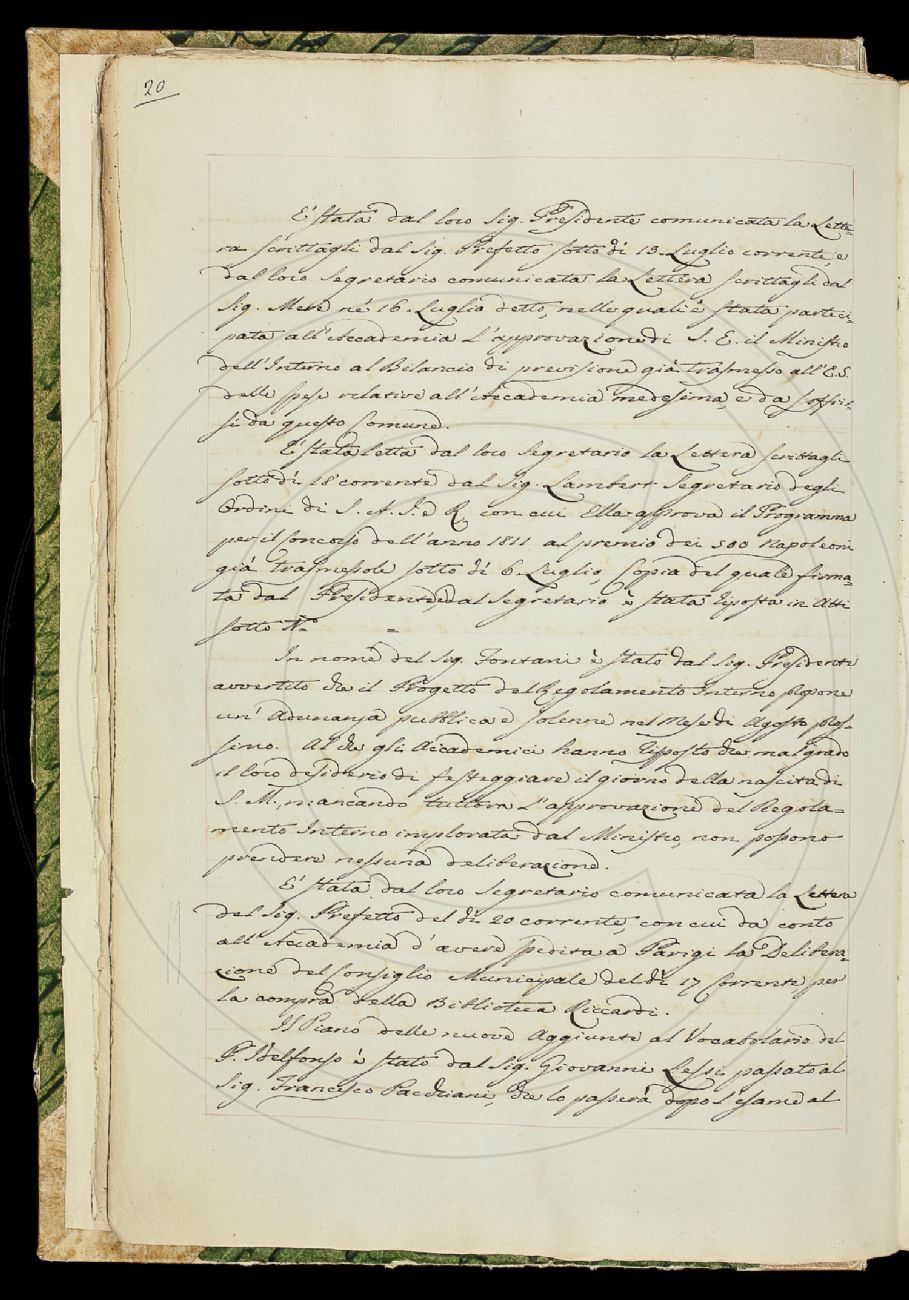 20
E' stata dal loro Sig. Presidente comunicata la Lette=
ra scrittagli dal Sig. Prefetto sotto dì 13. Luglio corrente, e
dal loro Segretario comunicata la Lettera scrittagli dal
Sig. Mere ne' 16. Luglio detto, nelle quali è stata parteci=
pata all'Accademia l'approvazione di S. E. il Ministro
dell'Interno al Bilancio di previsione già trasmesso all'E. S.
delle spese relative all'Accademia medesima, e da soffrir=
si da questo Comune.
E' stata letta dal loro Segretario la Lettera scrittagli
sotto dì 18 corrente dal Sig. Lambert Segretario degli
Ordini di S. A. I. e R. con cui Ella approva il Programma
per il Concorso dell'anno 1811 al premio dei 500 Napoleoni
già trasmessole sotto dì 6. Luglio, Copia del quale firma=
ta dal Presidente, e dal Segretario è stata riposta in Atti
sotto N.° =
In nome del Sig. Fontani è stato dal Sig. Presidente
avvertito che il Progetto del Regolamento Interno propone
un' Adunanza pubblica e solenne nel Mese di Agosto pros=
simo. Al che gli Accademici hanno risposto che malgrado
il loro desiderio di festeggiare il giorno della nascita di
S. M., mancando tuttora l'approvazione del Regola=
mento Interno implorata dal Ministro, non possono
prendere nessuna deliberazione.
E' stata dal loro Segretario comunicata la Lettera
del Sig. Prefetto del dì 20 corrente, con cui dà conto
all'Accademia d'avere spedita a Parigi la Delibera=
zione del Consiglio Municipale del dì 17 Corrente per
la compra della Biblioteca Riccardi.
Il Piano delle nuove Aggiunte al Vocabolario del
P. Idelfonso è stato dal Sig. Giovanni Lessi passato al
Sig. Francesco Pacchiani, che lo passerà dopo l'esame al